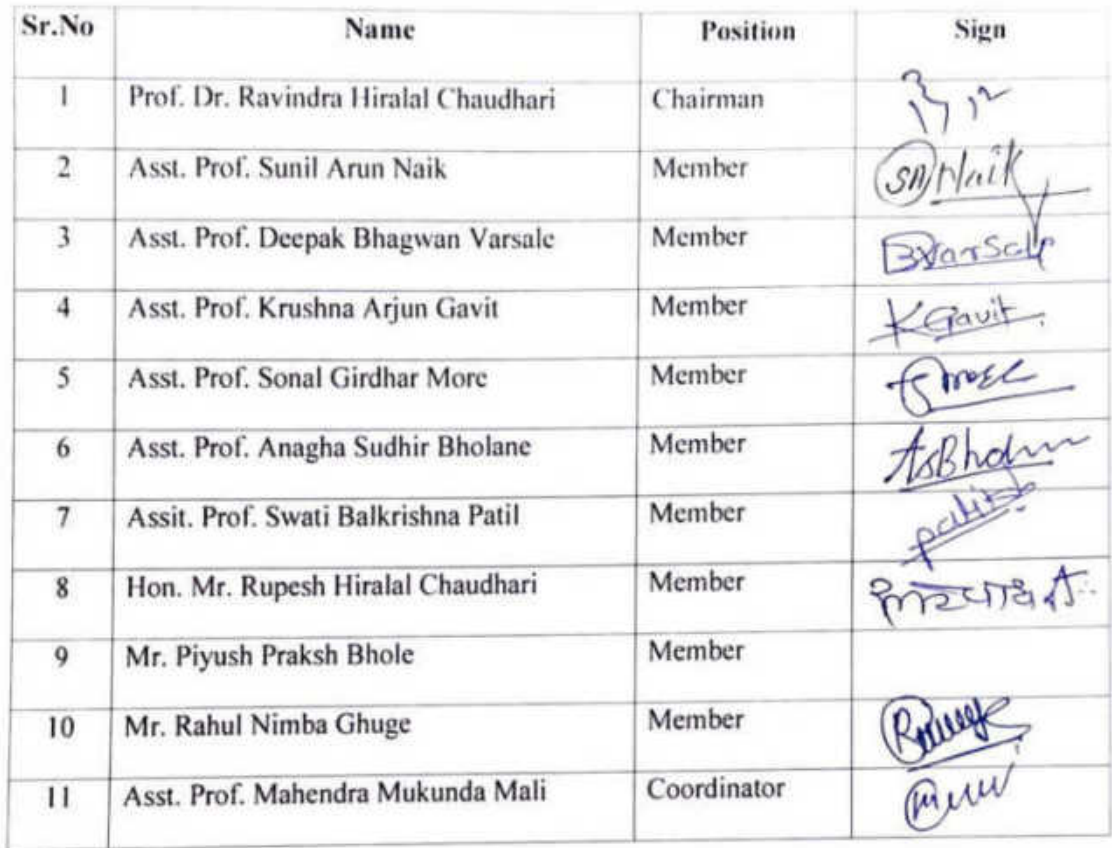 Sr.No Name Position Sign
1 Prof. Dr. Ravindra Hiralal Chaudhari Chairman
2 Asst. Prof. Sunil Arun Naik Member SA Naik
3 Asst. Prof. Deepak Bhagwan Varsale Member
4 Asst. Prof. Krushna Arjun Gavit Member KGavit
5 Asst. Prof. Sonal Girdhar More Member
6 Asst. Prof. Anagha Sudhir Bholane Member
7 Assit. Prof. Swati Balkrishna Patil Member
8 Hon. Mr. Rupesh Hiralal Chaudhari Member
9 Mr. Piyush Praksh Bhole Member
10 Mr. Rahul Nimba Ghuge Member
11 Asst. Prof. Mahendra Mukunda Mali Coordinator